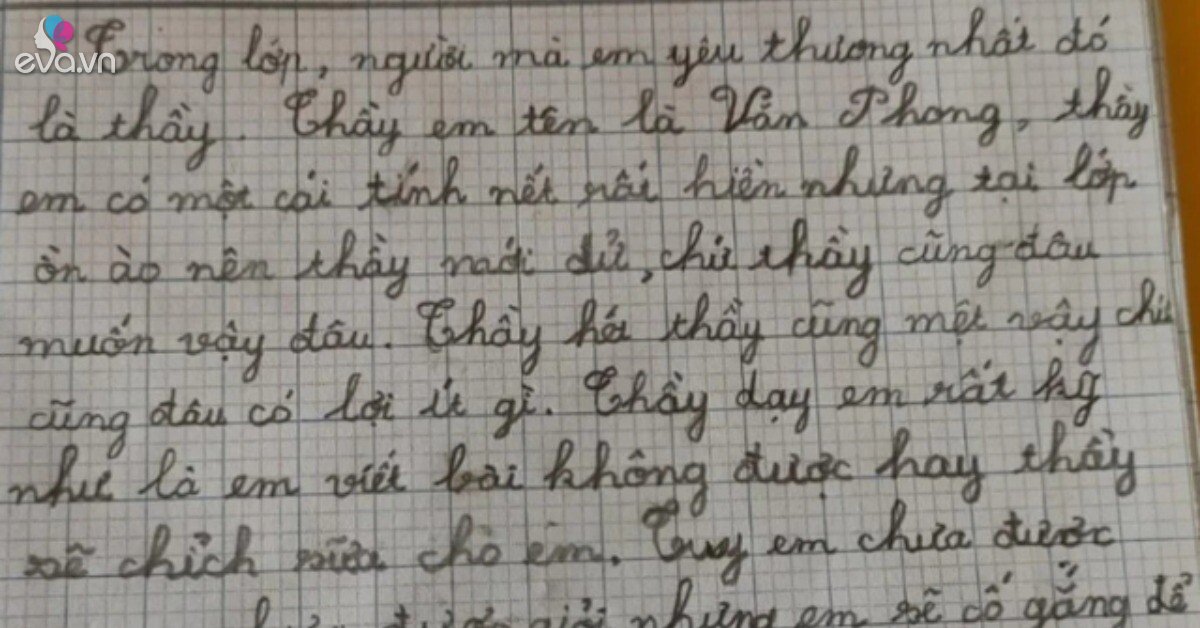 eva.vn
Trong lớp, người mà em yêu thương nhất đó
là thầy. Thầy em tên là Văn Phong, thầy
em có một cái tính nết rất hiền nhưng tại lớp
ồn ào nên thầy mới dử, chứ thầy cũng đâu
muốn vậy đâu. Thầy hét thầy cũng mệt vậy chứ
cũng đâu có lợi ít gì. Thầy dạy em rất kỹ
như là em viết bài không được hay thầy
sẽ chỉch sửa cho em. Tuy em chưa được
giỏi nhưng em sẽ cố gắng để